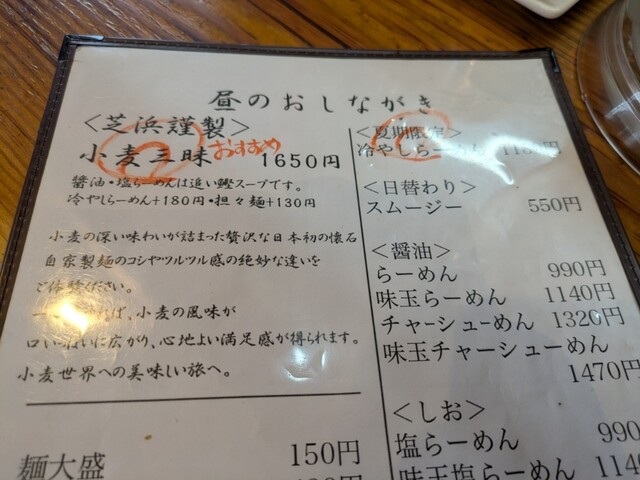 昼のおしながき
<芝浜謹製>
小麦三昧 おすすめ 1650円
醤油・塩らーめんは追い鰹スープです。
冷やしらーめん+180円・担々麺+130円
小麦の深い味わいが詰まった贅沢な日本初の懐石
自家製麺のコシやツルツル感の絶妙な違いを
ご体験ください。
れば、小麦の風味が
口いっぱいに広がり、心地よい満足感が得られます。
小麦世界への美味しい旅へ。
麺大盛 150円
<夏期限定>
冷やしらーめん 円
<日替わり>
スムージー 550円
<醤油>
らーめん 990円
味玉らーめん 1140円
チャーシューめん 1320円
味玉チャーシューめん
1470円
<しお>
塩らーめん 990
味玉塩らーめん 114